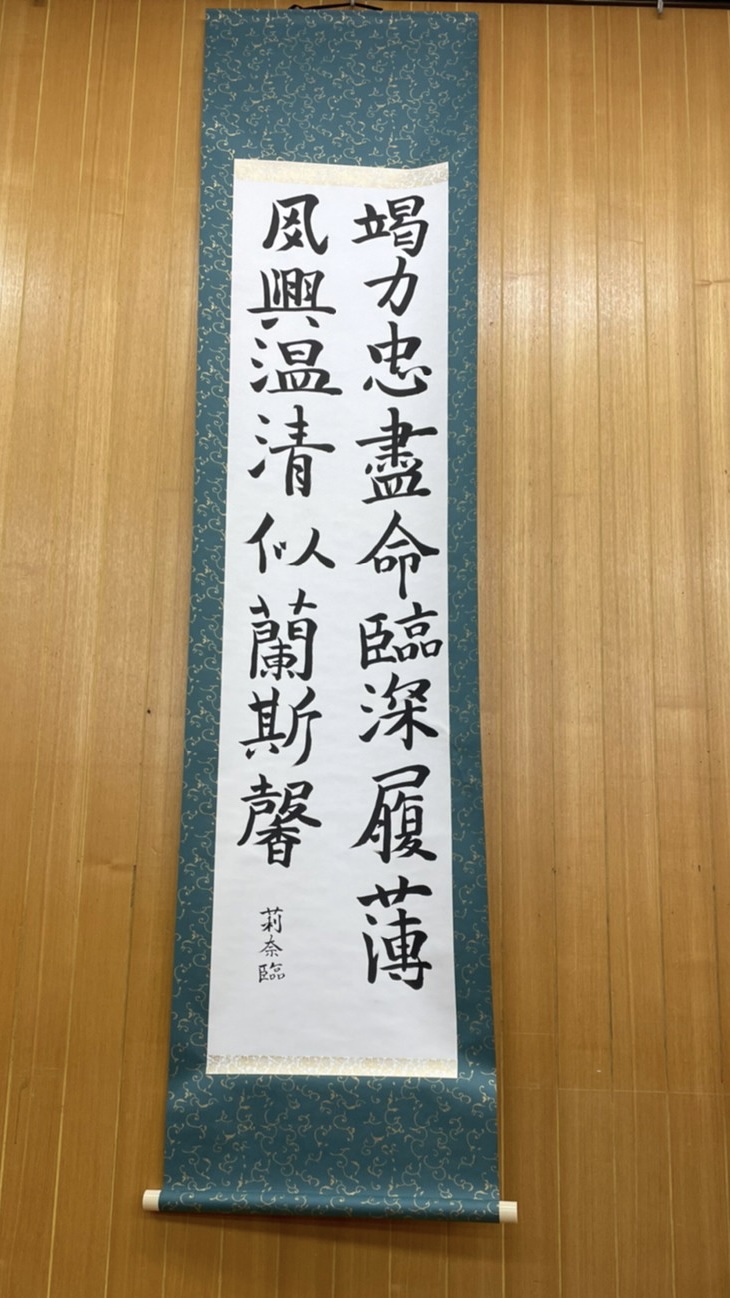 竭力忠盡命臨深履薄
夙興温清似蘭斯馨
莉奈臨